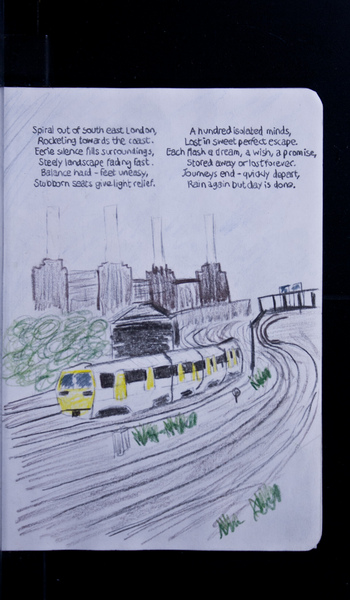 Spiral out of south east London,
Rocketing towards the coast.
Eerie silence fills surroundings,
Steely landscape fading fast.
Balance hard - feet uneasy,
Stubborn seats give light relief.
A hundred isolated minds,
Lost in sweet perfect escape.
Each flash a dream, a wish, a promise,
Stored away or lost forever.
Journeys end - quickly depart,
Rain again but day is done.